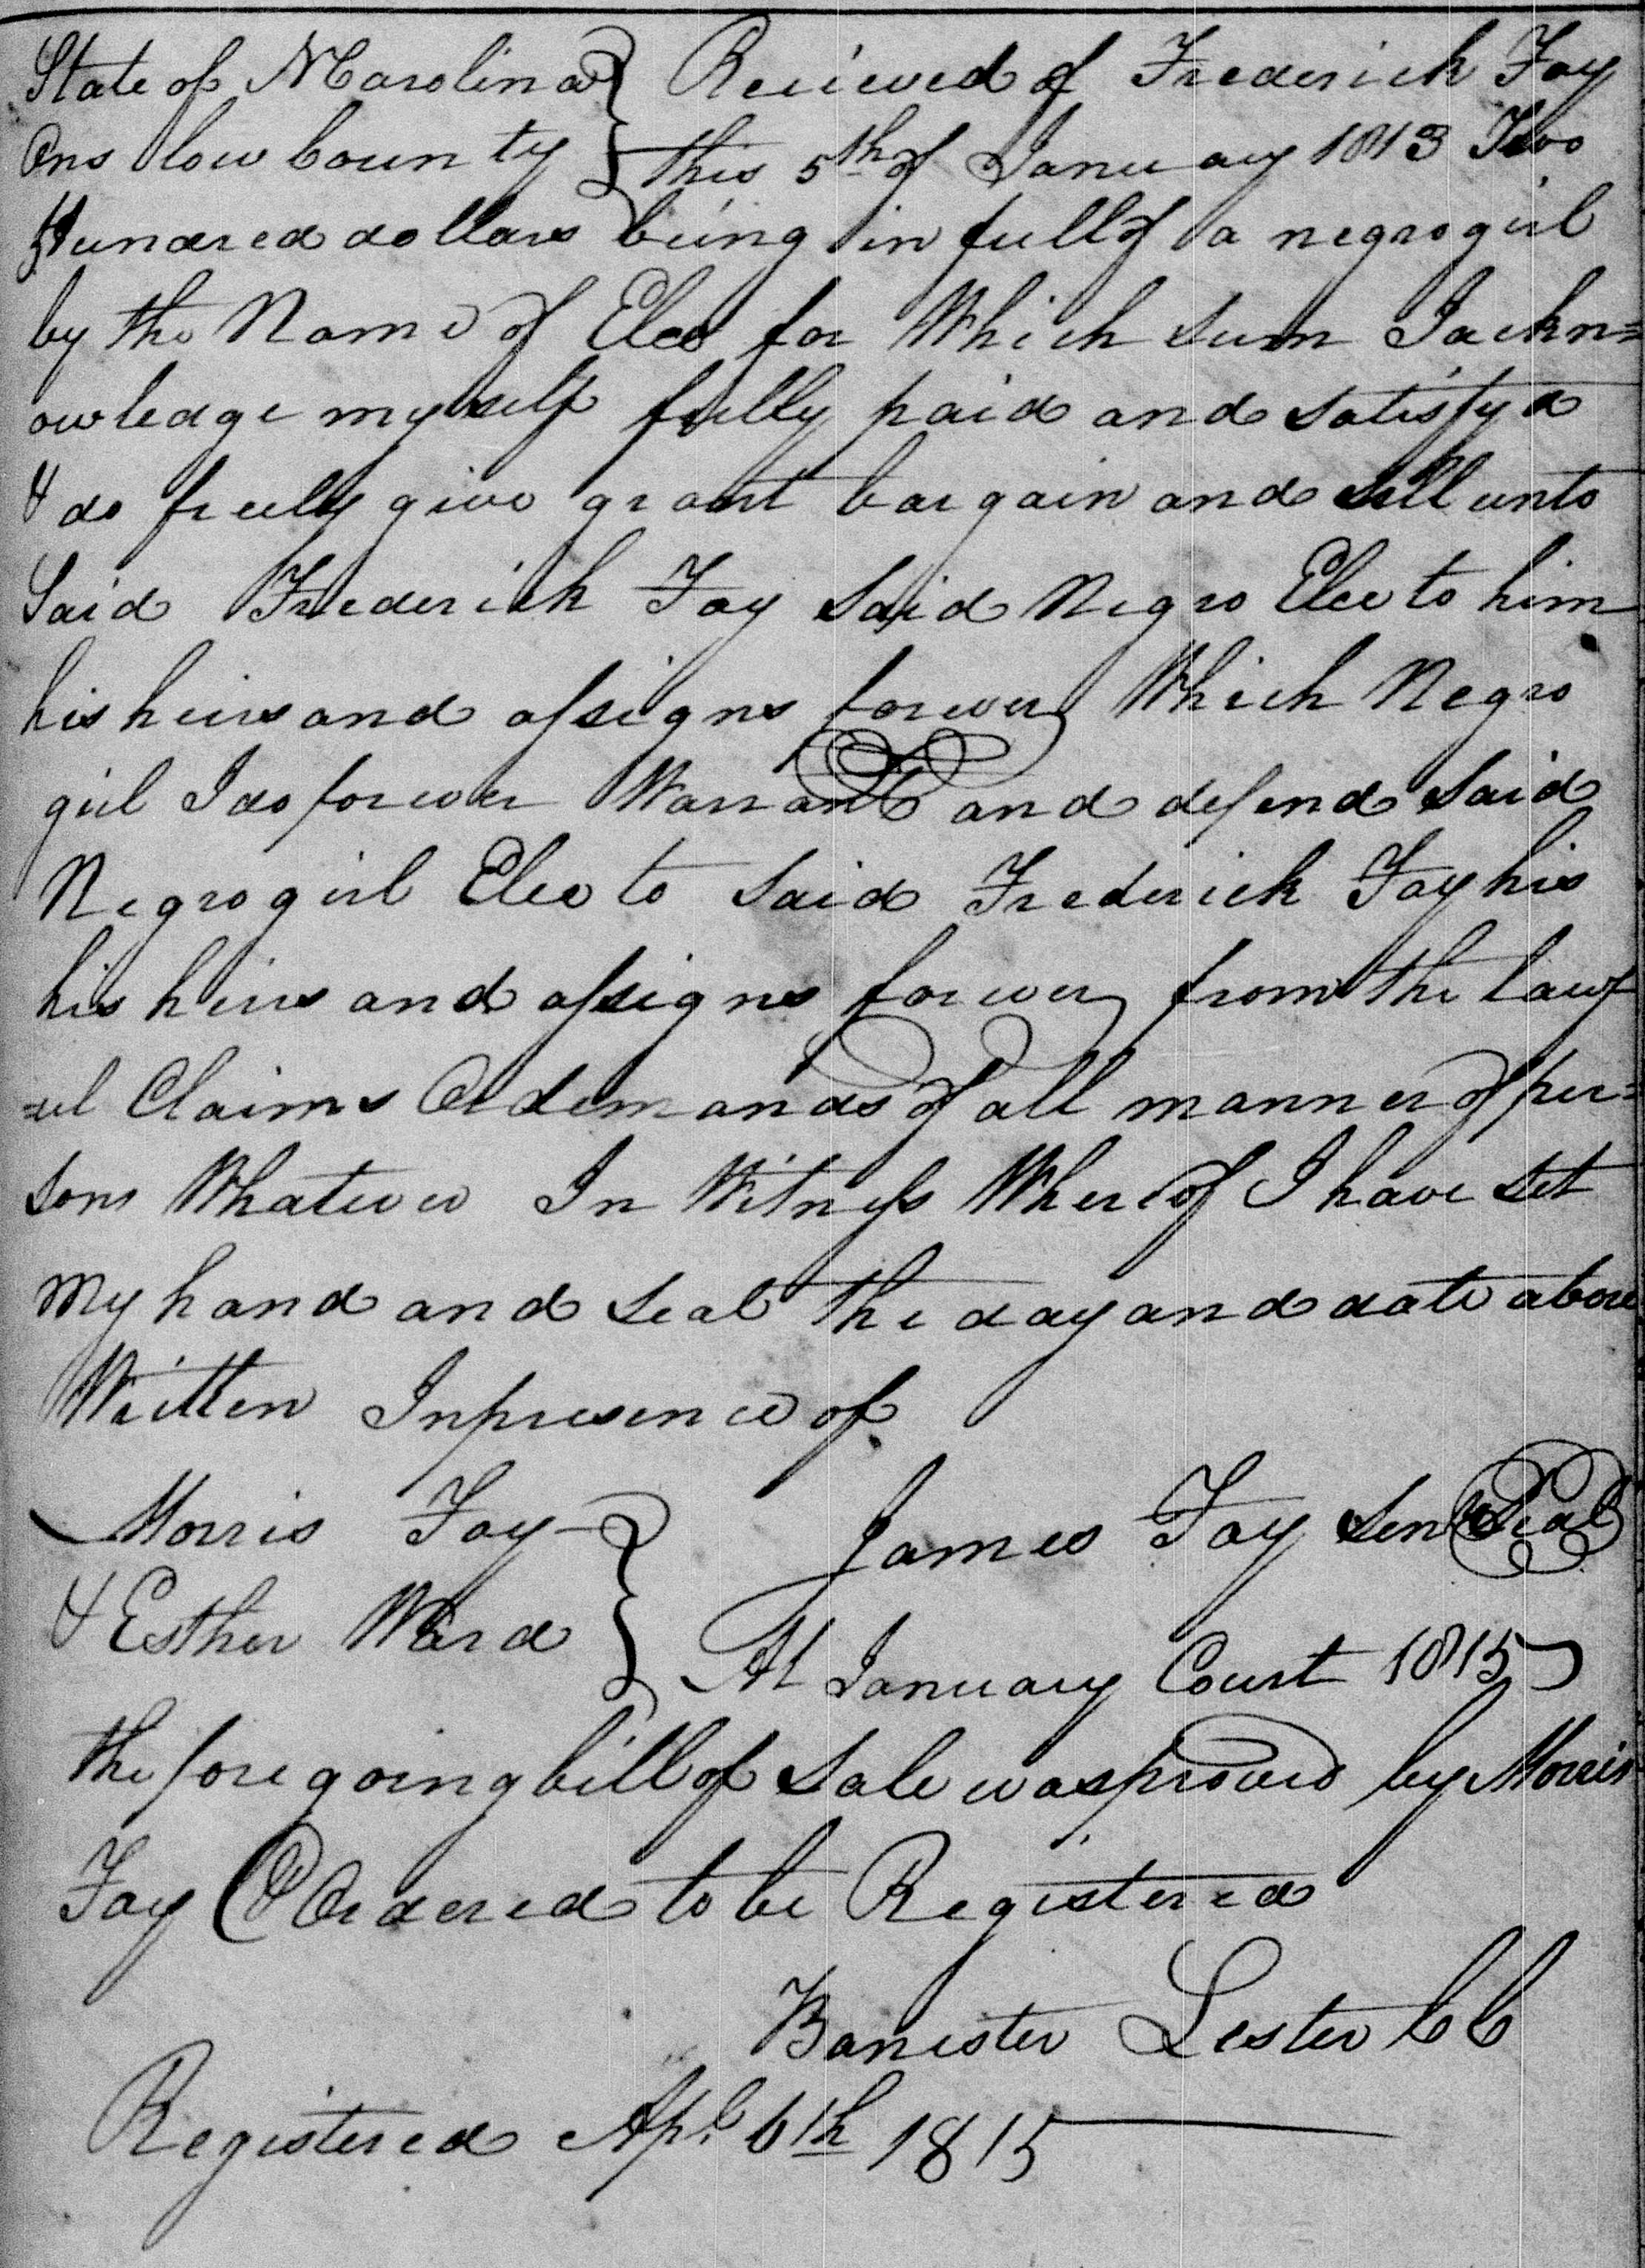 State of N Carolina } Recieved of Frederick Foy
Onslow County } this 5th of January 1813 Two
Hundred dollars being in full of a negro girl
by the Name of Elce for Which sum I ackn=
owledge myself fully paid and satisfyd
& do freely give grant bargain and sell unto
Said Frederick Foy Said Negro Elce to him
his heirs and assigns forever Which Negro
girl I do forever Warrant and defend Said
Negro girl Elce to Said Frederick Foy his
his heirs and assigns forever from the lawf
=ul Claims Or demands of all manner of per=
sons Whatever In Witness Whereof I have set
my hand and seal the day and date above
Written In presence of
Morris Foy }
James Foy Senr Seal
& Esther Ward }
At January Court 1815
the foregoing bill of Sale was proved by Morris
Foy Ordered to be Registered
Banister Lester CC
Registered Apl 6th 1815